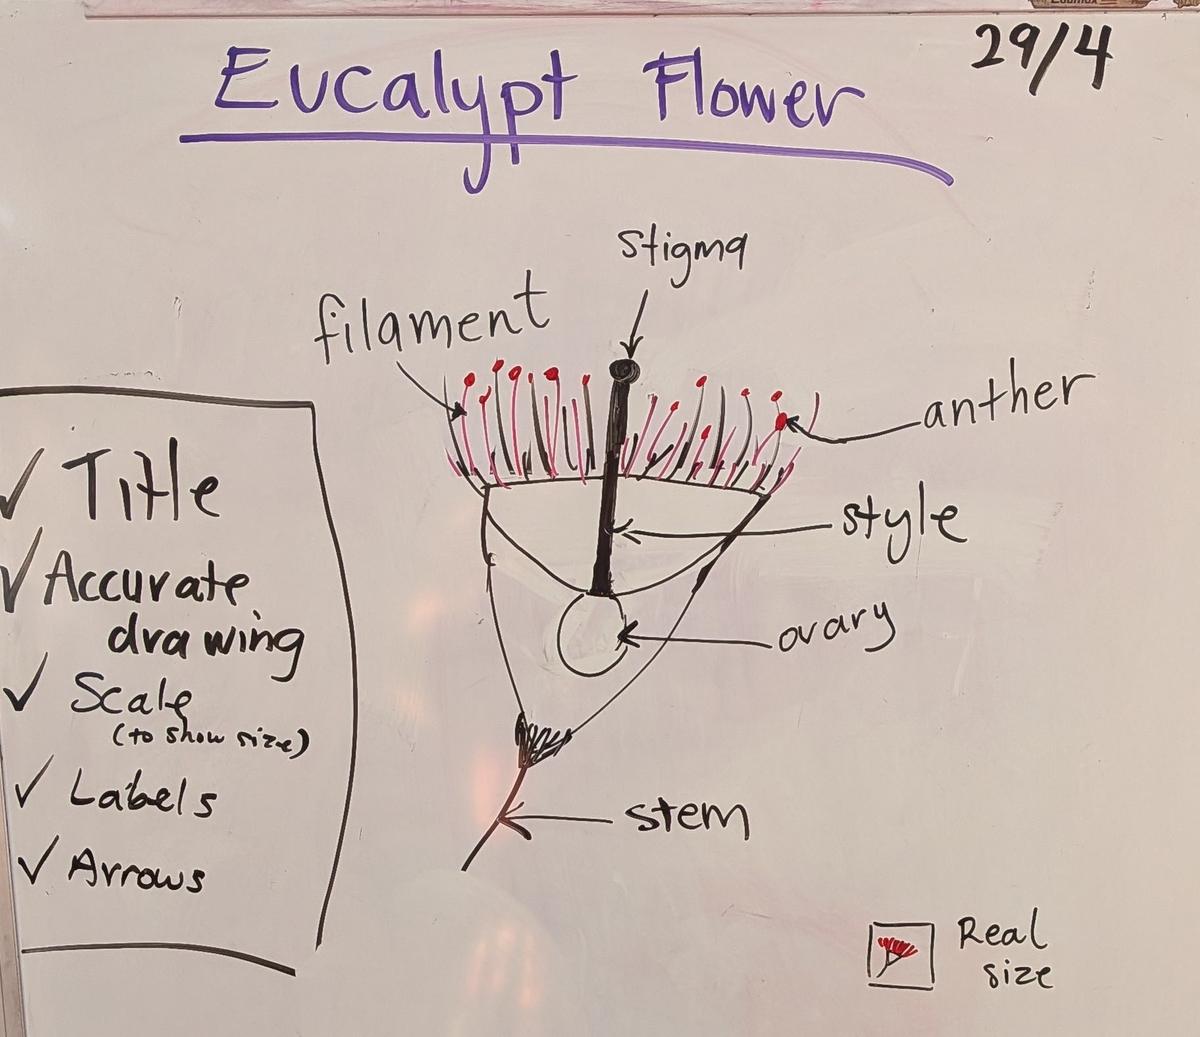 Eucalypt Flower
29/4
stigma
filament
anther
style
ovary
stem
✓ Title
✓ Accurate
drawing
✓ Scale
(to show size)
✓ Labels
✓ Arrows
Real
size